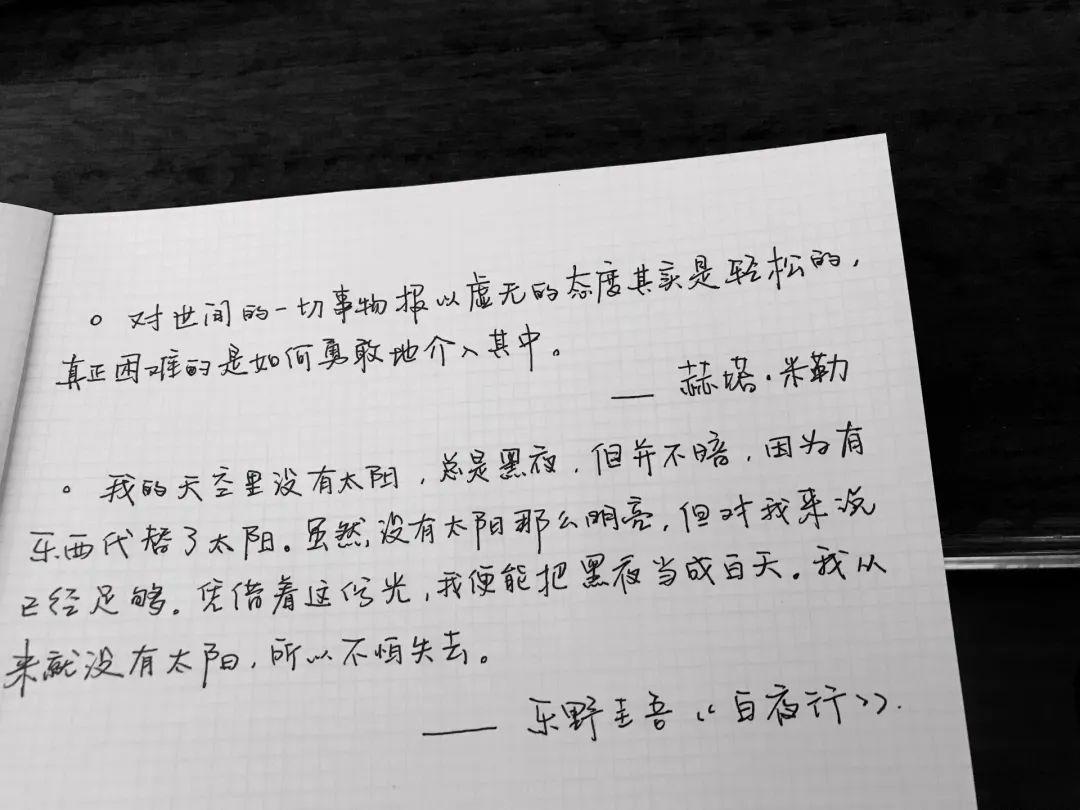 。对世间的一切事物报以虚无的态度其实是轻松的,
真正困难的是如何勇敢地介入其中。
—— 赫塔·米勒
。我的天空里没有太阳,总是黑夜,但并不暗,因为有
东西代替了太阳。虽然没有太阳那么明亮,但对我来说
已经足够。凭借着这份光,我便能把黑夜当成白天。我从
来就没有太阳,所以不怕失去。
—— 东野圭吾《白夜行》.